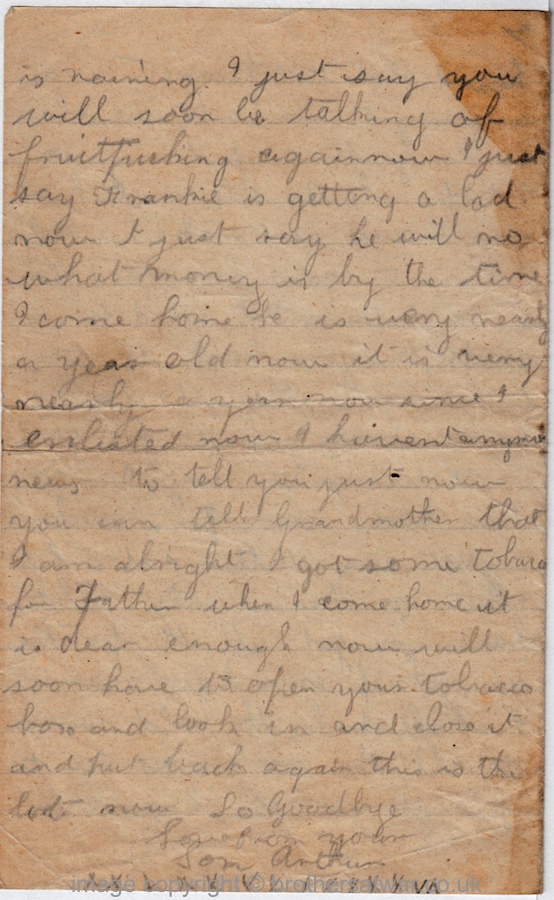 is raining I just say you
will soon be talking of
fruitpicking again now I just
say Frankie is getting a lad
now I just say he will no
what money is by the time
I come home he is very nearly
a year old now it is very
nearly a year now since I
enlisted now I havent anymore
news to tell you just now
you can tell Grandmother that
I am alright I got some tobaco
for Father when I come home it
is dear enough now will
soon have to open your tobacco
box and look in and close it
and put back again this is the
lot now So Goodbye
Love from your
Son Arthur
image copyright © brothersatwar.co.uk